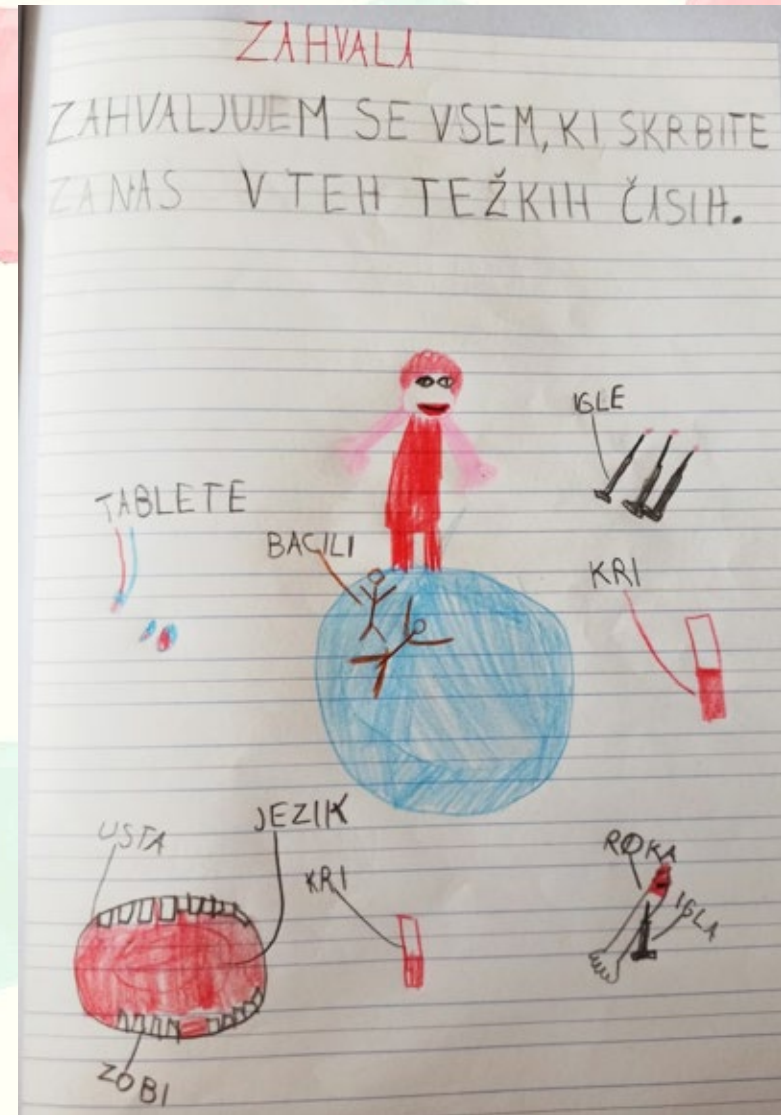 ZAHVALA
ZAHVALJUJEM SE VSEM, KI SKRBITE
ZA NAS V TEH TEŽKIH ČASIH.
IGLE
TABLETE
BACILI
KRI
USTA
JEZIK
KRI
ROKA
IGLA
ZOBI